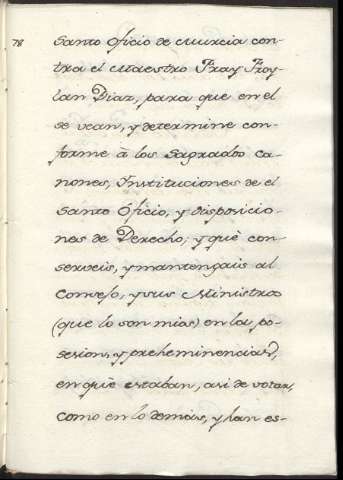 78 Santo Oficio de Murcia con-
tra el Maestro Fray Froy-
lan Diaz, para que en el
se vean, y determine con-
forme à los Sagrados Ca-
nones, Instituciones de el
Santo Oficio, y disposicio-
nes de Derecho; y què con-
serveis, y mantengais al
Consejo, y sus Ministros
(que lo son mios) en la po-
sesion, y preheminencias,
en què estaban, asi de votar,
como en lo demàs, y han es-